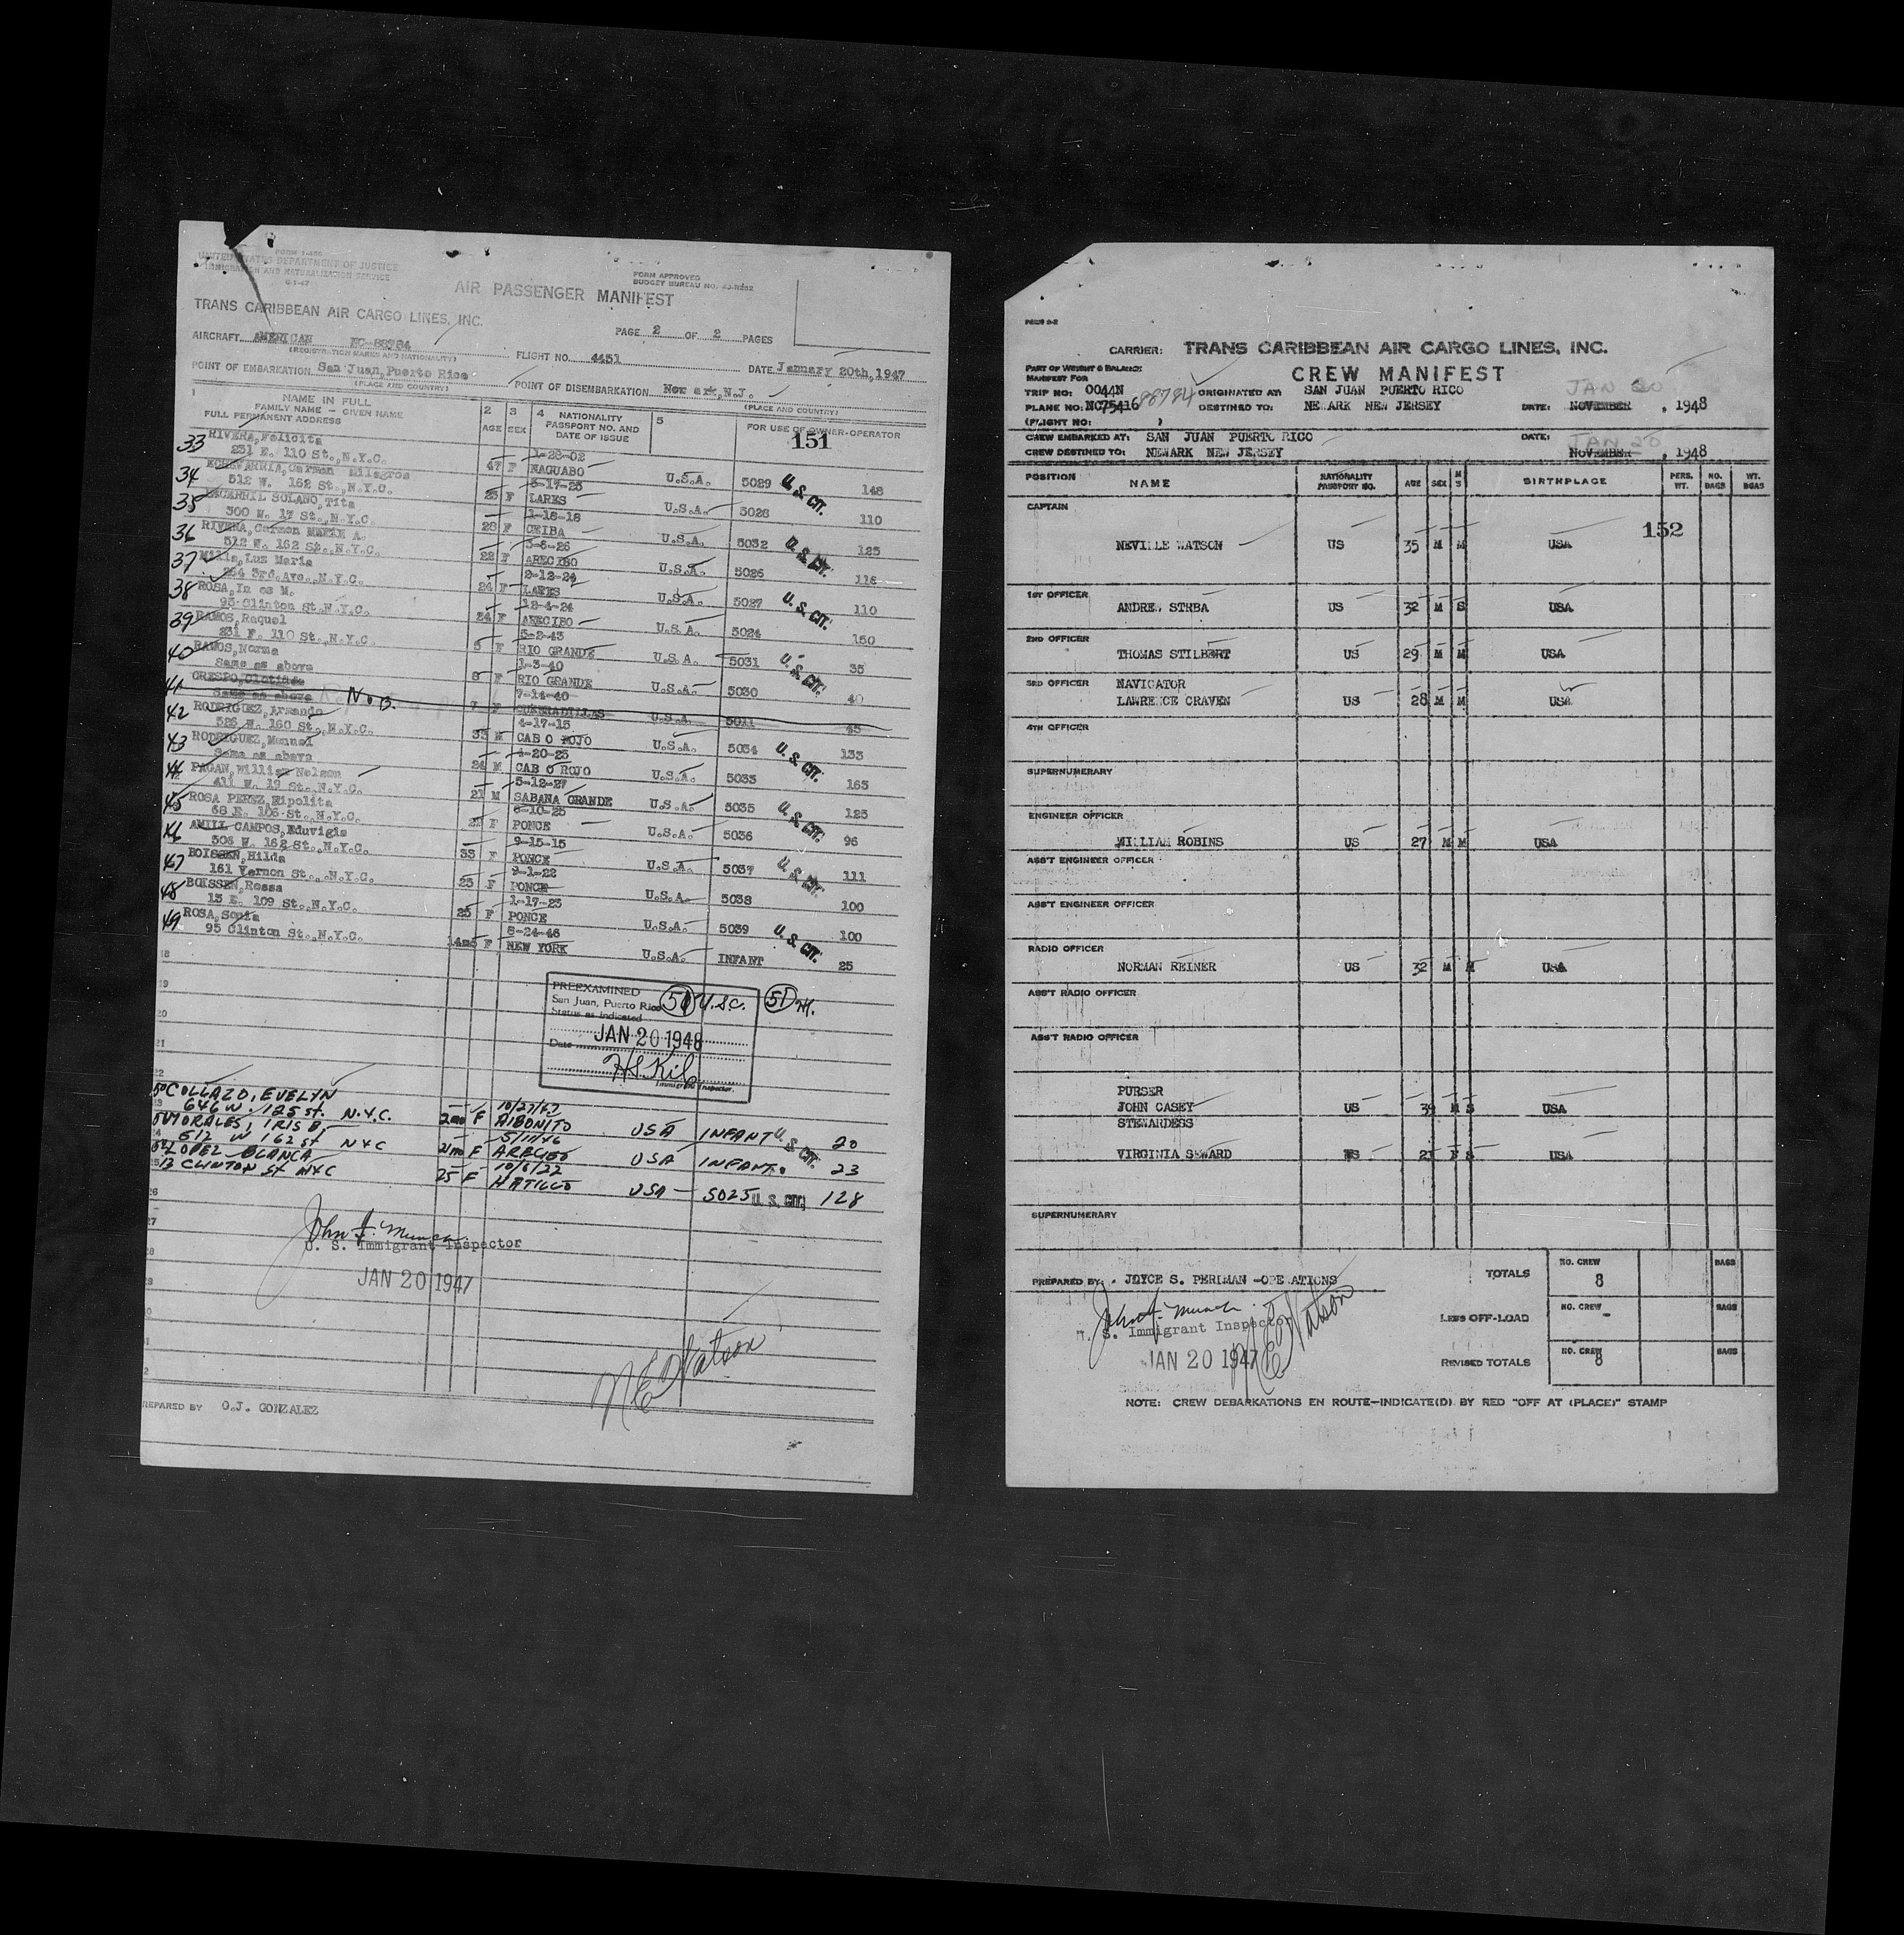 FORM I-466
UNITED STATES DEPARTMENT OF JUSTICE
IMMIGRATION AND NATURALIZATION SERVICE
6-1-47
FORM APPROVED
BUDGET BUREAU NO.
AIR PASSENGER MANIFEST
TRANS CARIBBEAN AIR CARGO LINES, INC.
PAGE 2 OF 2 PAGES
AIRCRAFT AMERICAN NC-88784
(REGISTRATION MARKS AND NATIONALITY)
FLIGHT NO. 4451
DATE January 20th, 1947
POINT OF EMBARKATION San Juan, Puerto Rico
(PLACE AND COUNTRY)
POINT OF DISEMBARKATION New ark, N.J.
(PLACE AND COUNTRY)
1 NAME IN FULL
FAMILY NAME — GIVEN NAME
FULL PERMANENT ADDRESS
2 AGE
3 SEX
4 NATIONALITY
PASSPORT NO. AND
DATE OF ISSUE
5
FOR USE OF OWNER-OPERATOR
151
33 RIVERA, Felicita 1-28-02
231 E. 110 St., N.Y.C. 47 F NAGUABO U.S.A. 5029 U. S. CIT. 148
34 ECHEVARRIA, Carmen Milagros 3-17-25
512 W. 162 St., N.Y.C. 23 F LARES U.S.A. 5028 110
35 SOLANO, Tita 1-18-18
300 W. 17 St., N.Y.C. 28 F CEIBA U.S.A. 5032 U. S. CIT. 125
36 RIVERA, Carmen A. 3-6-26
512 W. 162 St., N.Y.C. 22 F ARECIBO U.S.A. 5026 118
37 Milia, Luz Maria 2-12-24
264 3rd. Ave., N.Y.C. 24 F LARES U.S.A. 5027 U. S. CIT. 110
38 ROSA, In es M. 12-4-24
95 Clinton St., N.Y.C. 24 F ARECIBO U.S.A. 5024 150
39 RAMOS, Raquel 5-2-43
231 E. 110 St., N.Y.C. 5 F RIO GRANDE U.S.A. 5031 U. S. CIT. 35
40 RAMOS, Norma 1-3-40
Same as above 8 F RIO GRANDE U.S.A. 5030 40
41 CRESPO, Clotilde 7-11-40
Same as above N.O.B. 7 F QUEBRADILLAS U.S.A. 5011 45
42 RODRIGUEZ, Armando 4-17-15
526 W. 160 St., N.Y.C. 33 M CAB O ROJO U.S.A. 5034 U. S. CIT. 133
43 RODRIGUEZ, Manuel 4-20-23
Same as above 24 M CAB O ROJO U.S.A. 5033 165
44 PAGAN, William Nelson 5-12-27
411 W. 19 St., N.Y.C. 21 M SABANA GRANDE U.S.A. 5035 U. S. CIT. 125
45 ROSA PEREZ, Ripolita 6-10-25
68 E. 106 St., N.Y.C. 22 F PONCE U.S.A. 5036 96
46 AMILL CAMPOS, Eduvigis 9-15-15
506 W. 162 St., N.Y.C. 33 F PONCE U.S.A. 5037 U. S. CIT. 111
47 BOISSEN, Hilda 9-1-22
161 Vernon St., N.Y.C. 25 F PONCE U.S.A. 5038 100
48 BOISSEN, Rossa 1-17-23
13 E. 109 St., N.Y.C. 25 F PONCE U.S.A. 5039 U. S. CIT. 100
49 ROSA, Sonia 8-24-46
95 Clinton St., N.Y.C. 14ms F NEW YORK U.S.A. INFANT 25
18
19
20
21
22
PREEXAMINED
San Juan, Puerto Rico
Status as indicated
51 U.S.C. 51 M.
Date JAN 20 1948
Immigrant Inspector.
50 COLLAZO, EVELYN 10/27/47
646 W. 125 st. N.Y.C. 2mo F AIBONITO USA INFANT U. S. CIT. 20
51 MORALES, IRIS B. 5/11/46
512 W 162 st NYC 21mo F ARECIBO USA INFANT 23
52 LOPEZ BLANCA 10/8/22
13 CLINTON ST NYC 25 F HATILLO USA 5025 U. S. CIT. 128
26
27
28
29
John J. Munch
U. S. Immigrant Inspector
JAN 20 1947
N E Watson
PREPARED BY O.J. GONZALEZ
CARRIER: TRANS CARIBBEAN AIR CARGO LINES, INC.
CREW MANIFEST
PART OF WEIGHT & BALANCE
MANIFEST FOR
TRIP NO: 0044N
ORIGINATED AT: SAN JUAN PUERTO RICO
JAN 20
PLANE NO: NC75416 88784
DESTINED TO: NEWARK NEW JERSEY
DATE: NOVEMBER , 1948
(FLIGHT NO: )
CREW EMBARKED AT: SAN JUAN PUERTO RICO
DATE: JAN 20
CREW DESTINED TO: NEWARK NEW JERSEY
NOVEMBER , 1948
POSITION NAME NATIONALITY PASSPORT NO. AGE SEX M S BIRTHPLACE PERS. WT. NO. BAGS WT. BGAS
CAPTAIN
152
NEVILLE WATSON US 35 M M USA
1ST OFFICER
ANDREW STRBA US 32 M S USA
2ND OFFICER
THOMAS STILBERT US 29 M M USA
3RD OFFICER NAVIGATOR
LAWRENCE CRAVEN US 28 M M USA
4TH OFFICER
SUPERNUMERARY
ENGINEER OFFICER
WILLIAM ROBINS US 27 M M USA
ASS'T ENGINEER OFFICER
ASS'T ENGINEER OFFICER
RADIO OFFICER
NORMAN REINER US 32 M M USA
ASS'T RADIO OFFICER
ASS'T RADIO OFFICER
PURSER
JOHN CASEY US 39 M S USA
STEWARDESS
VIRGINIA SEWARD US 21 F S USA
SUPERNUMERARY
PREPARED BY: JOYCE S. PERLMAN -OPERATIONS
TOTALS NO. CREW 8 BAGS
LESS OFF-LOAD NO. CREW - BAGS
REVISED TOTALS NO. CREW 8 BAGS
John J. Munch
U. S. Immigrant Inspector
JAN 20 1947
N E Watson
NOTE: CREW DEBARKATIONS EN ROUTE—INDICATE(D) BY RED "OFF AT (PLACE)" STAMP